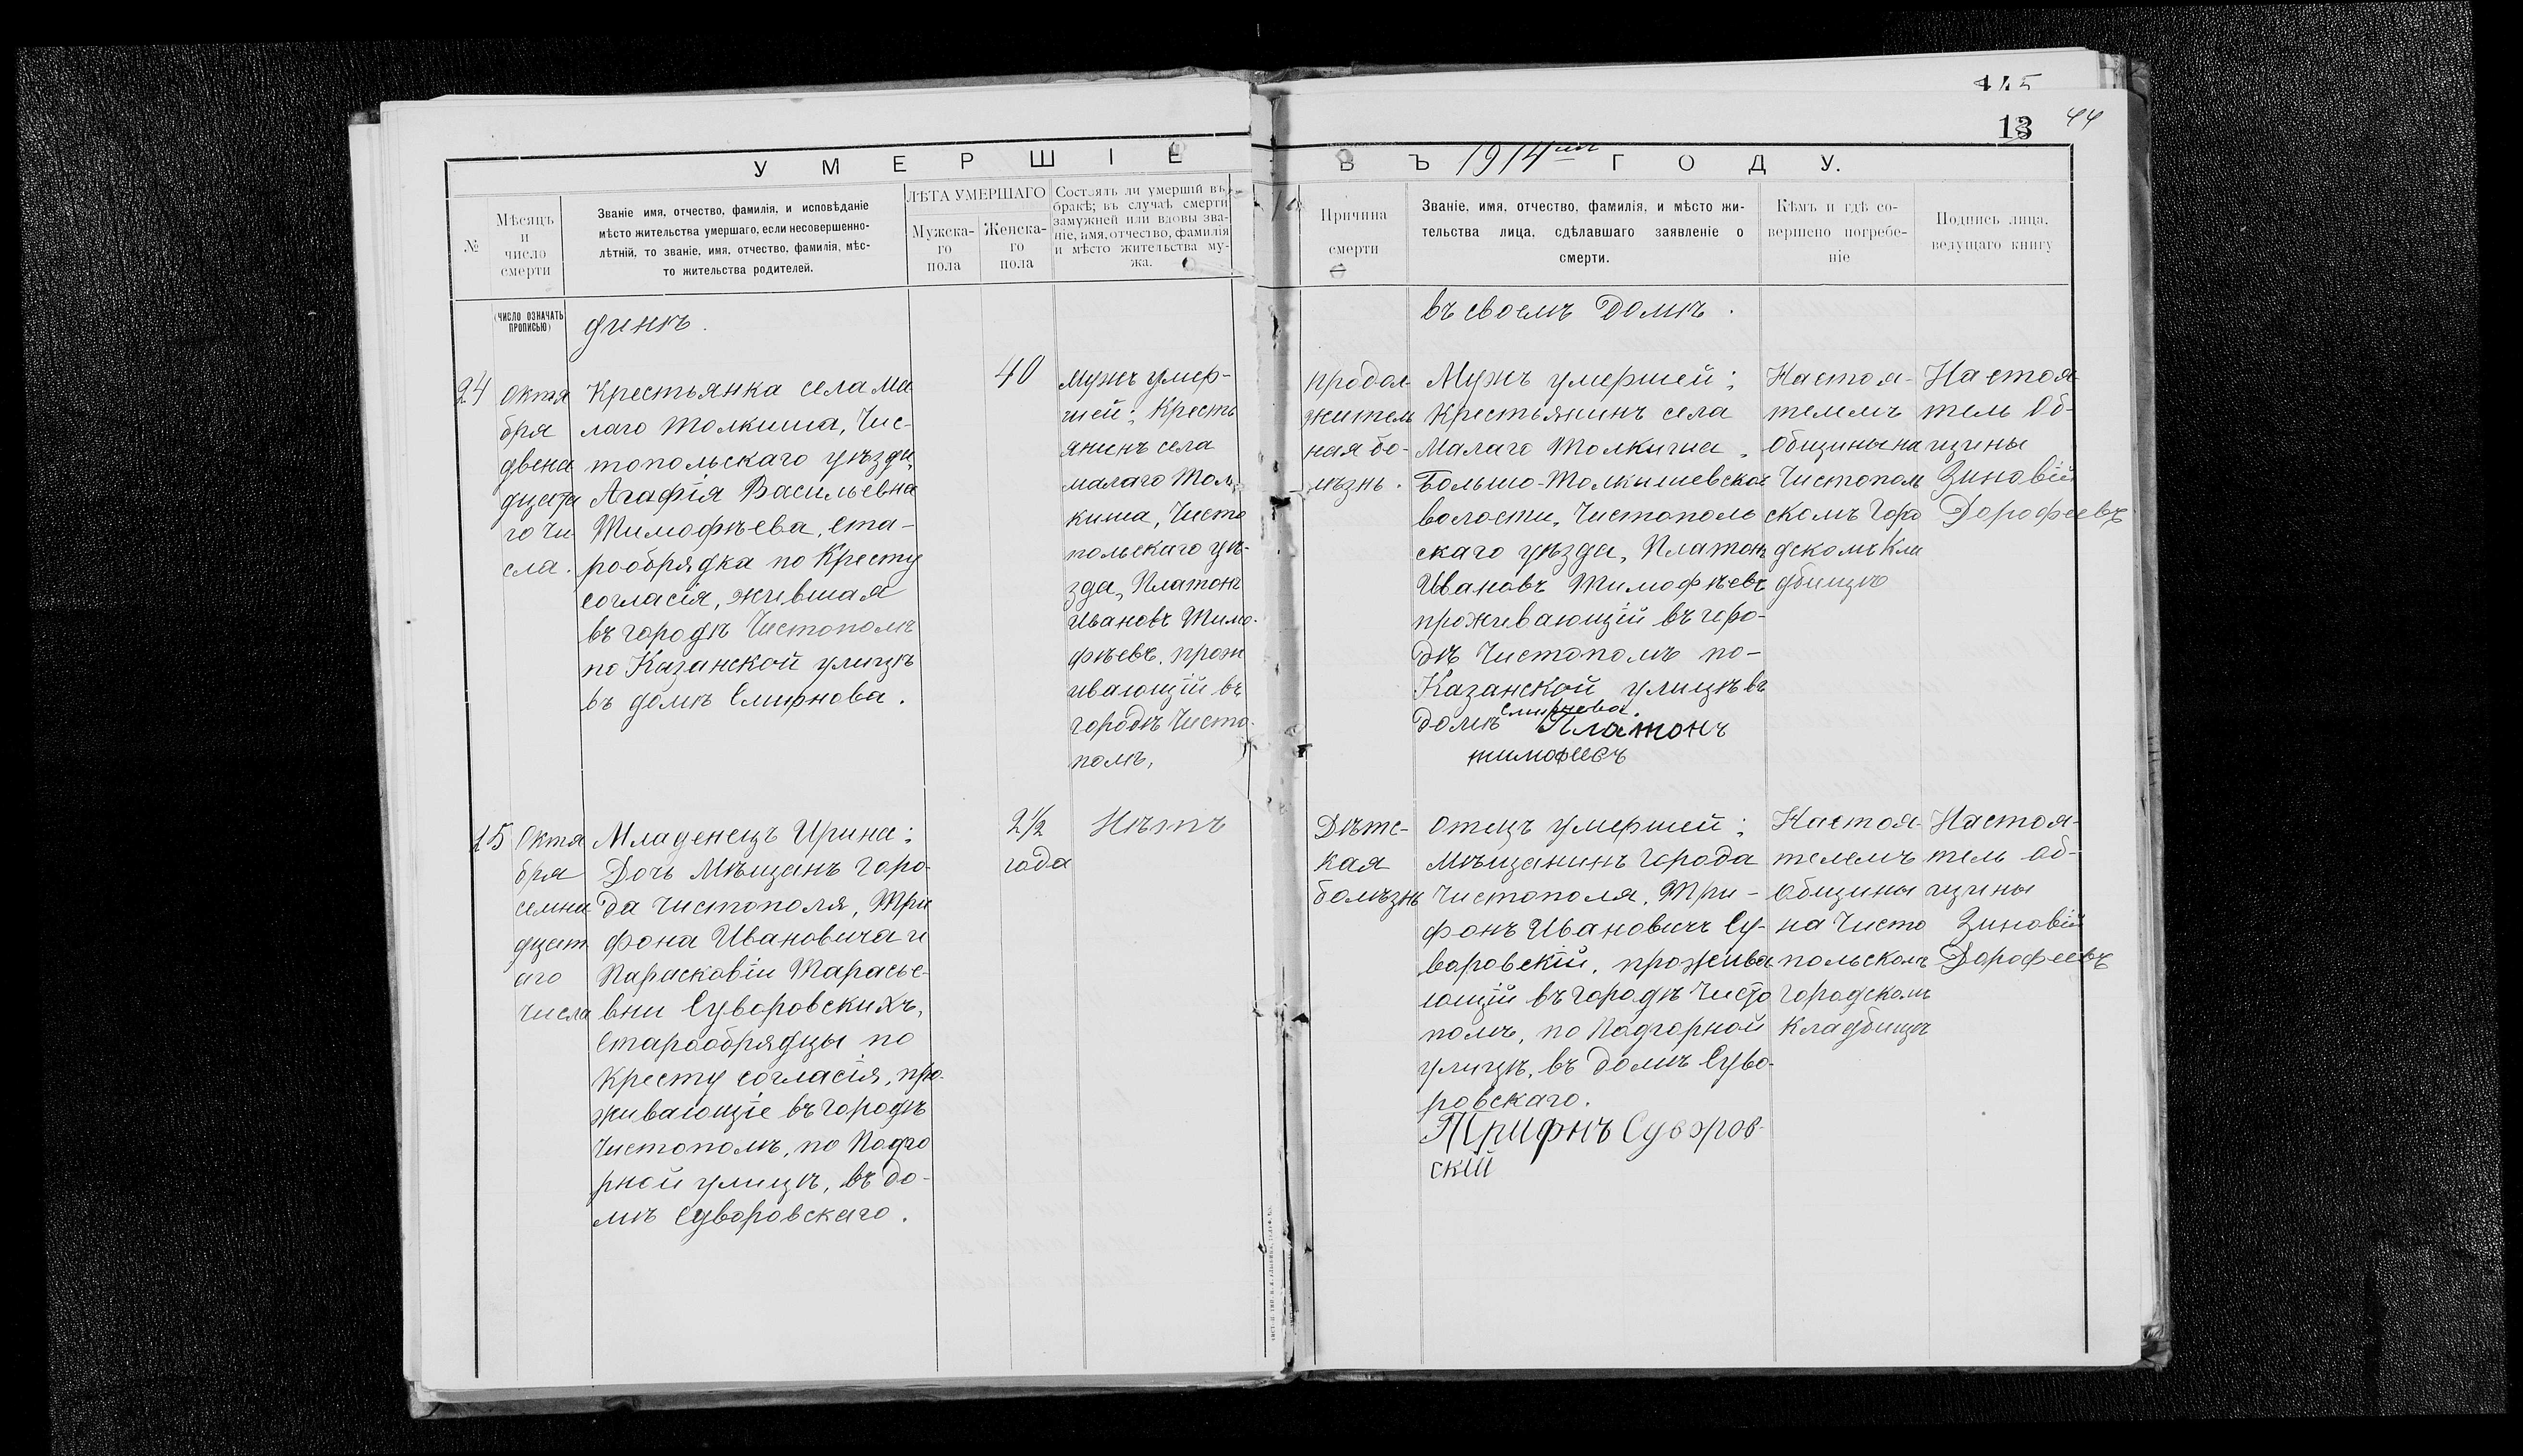 145
13 44
УМЕРШІЕ
ВЪ 1914мъ ГОДУ.
№
Мѣсяцъ
и
число
смерти
Званіе имя, отчество, фамилія, и исповѣданіе
мѣсто жительства умершаго, если несовершенно-
лѣтній, то званіе, имя, отчество, фамилія, мѣс-
то жительства родителей.
ЛѢТА УМЕРШАГО
Мужска-
го
пола
Женска-
го
пола
Состоялъ ли умершій въ
бракѣ; въ случаѣ смерти
замужней или вдовы зва-
ніе, имя, отчество, фамилія
и мѣсто жительства му-
жа.
Причина
смерти
Званіе, имя, отчество, фамилія, и мѣсто жи-
тельства лица, сдѣлавшаго заявленіе о
смерти.
Кѣмъ и гдѣ со-
вершено погребе-
ніе
Подпись лица,
ведущаго книгу
(ЧИСЛО ОЗНАЧАТЬ
ПРОПИСЬЮ)
динѣ.
въ своемъ Домѣ.
24
Октя
бря
двена
дцата
го Чи
сла.
Крестьянка села Ма
лаго Толкиша, Чис-
топольскаго уѣзда,
Агафія Васильевна
Тимофѣева, Ста-
рообрядка по Кресту
согласія, жившая
въ городѣ Чистополѣ
по Казанской улицѣ
въ домѣ Смирнова.
40
Мужъ умер-
шей; Кресть
янинъ села
малаго Тол-
киша, Чисто
польскаго уѣ-
зда, Платонъ
Ивановъ Тимо-
фѣевъ, прож
ивающій въ
городѣ Чисто-
полѣ,
продол
жителъ
ная бо-
лѣзнь.
Мужъ умершей;
Крестьянинъ села
Малаго Толкиша,
Большо-Толкишевской
волости, Чистополь
скаго уѣзда, Платонъ
Ивановъ Тимофѣевъ
проживающій въ горо-
дѣ Чистополѣ по-
Казанской улицѣ въ
Смирнова.
домѣ Платонъ
тимофеевъ
Настоя-
телемъ
Общины на
Чистополь
скомъ Горо
дскомъ Кла
дбищѣ
Настоя-
тель Об-
щины
Зиновій
Дорофеевъ
15
Октя
бря
семна
дцат
аго
числа
Младенецъ Ирина;
Дочь Мѣщанъ горо-
да Чистополя, Три
фона Ивановича и
Парасковіи Тарасье-
вни Суворовскихъ,
Старообрядцы по
Кресту согласія, про-
живающіе въ городѣ
Чистополѣ, по Подго
рной улицѣ, въ до-
мѣ Суворовскаго.
2½
года
Нѣтъ
Дѣтс-
кая
болѣзнь
Отецъ умершей;
Мѣщанинъ Города
Чистополя, Три-
фонъ Ивановичъ Су-
воровскій, прожива
ющій въ городѣ Чисто
полѣ, по Подгорной
улицѣ, въ домѣ Суво-
ровскаго.
Трифнъ Суворов-
скій
Настоя-
телемъ
Общины
на Чисто
польскомъ
Городскомъ
Кладбищѣ
Настоя-
тель Об-
щины
Зиновій
Дорофеевъ